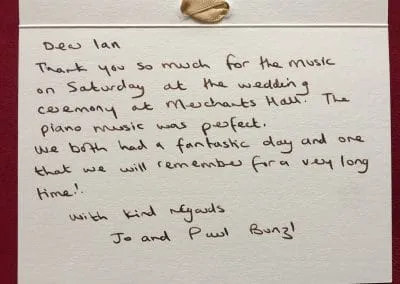 Dear Ian
Thank you so much for the music
on Saturday at the wedding
ceremony at Merchants Hall. The
piano music was perfect.
We both had a fantastic day and one
that we will remember for a very long
time!.
With kind regards
Jo and Paul Bunzl